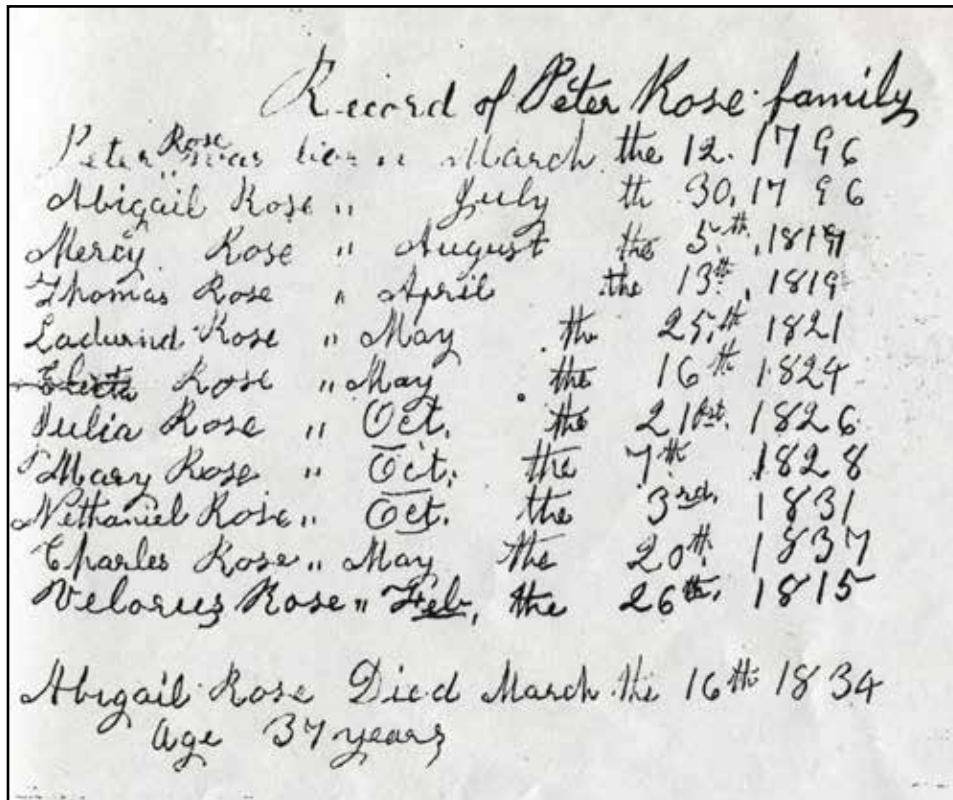 Record of Peter Rose family
Peter Rose was born March the 12. 1796
Abigail Rose " July th 30, 1796
Mercy Rose " August the 5.th, 1819
Thomas Rose " April the 13th, 1819
Ladurnd Rose " May the 25,th 1821
Electa Rose " May the 16th 1824
Julia Rose " Oct. the 21st. 1826
Mary Rose " Oct. the 7th 1828
Nethaniel Rose " Oct. the 3rd. 1831
Charles Rose " May the 20th 1837
Velorus Rose " Feb, the 26th, 1815
Abigail Rose Died March the 16th 1834
age 37 years